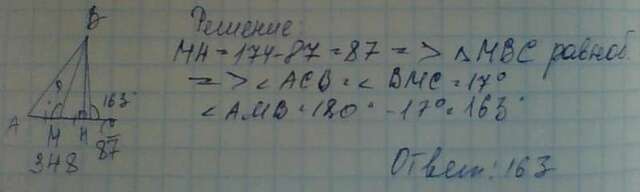 Решение
B
MH = 174-87 = 87 => △ MBC равноб.
=> < ACB = < BMC = 17°
163°
< AMB = 180° - 17° = 163°
A M H C
348 87
Ответ: 163